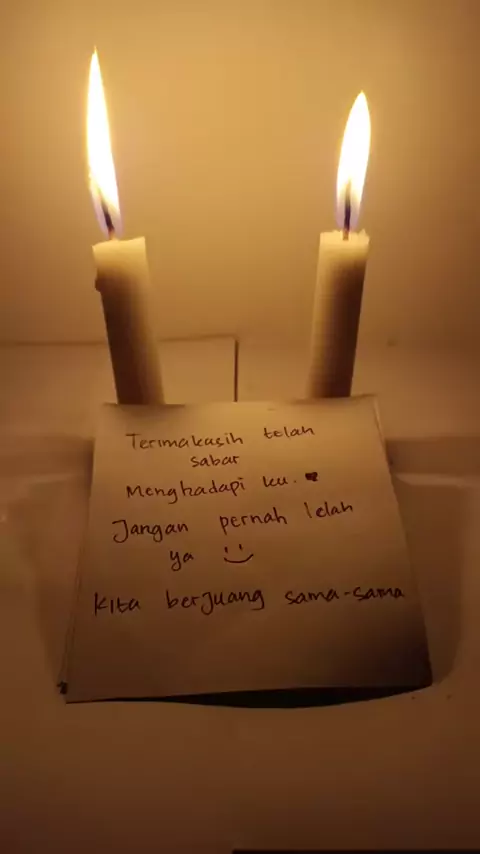 Terimakasih telah
sabar
Menghadapi ku. ❤
Jangan pernah lelah
ya :)
Kita berjuang sama-sama